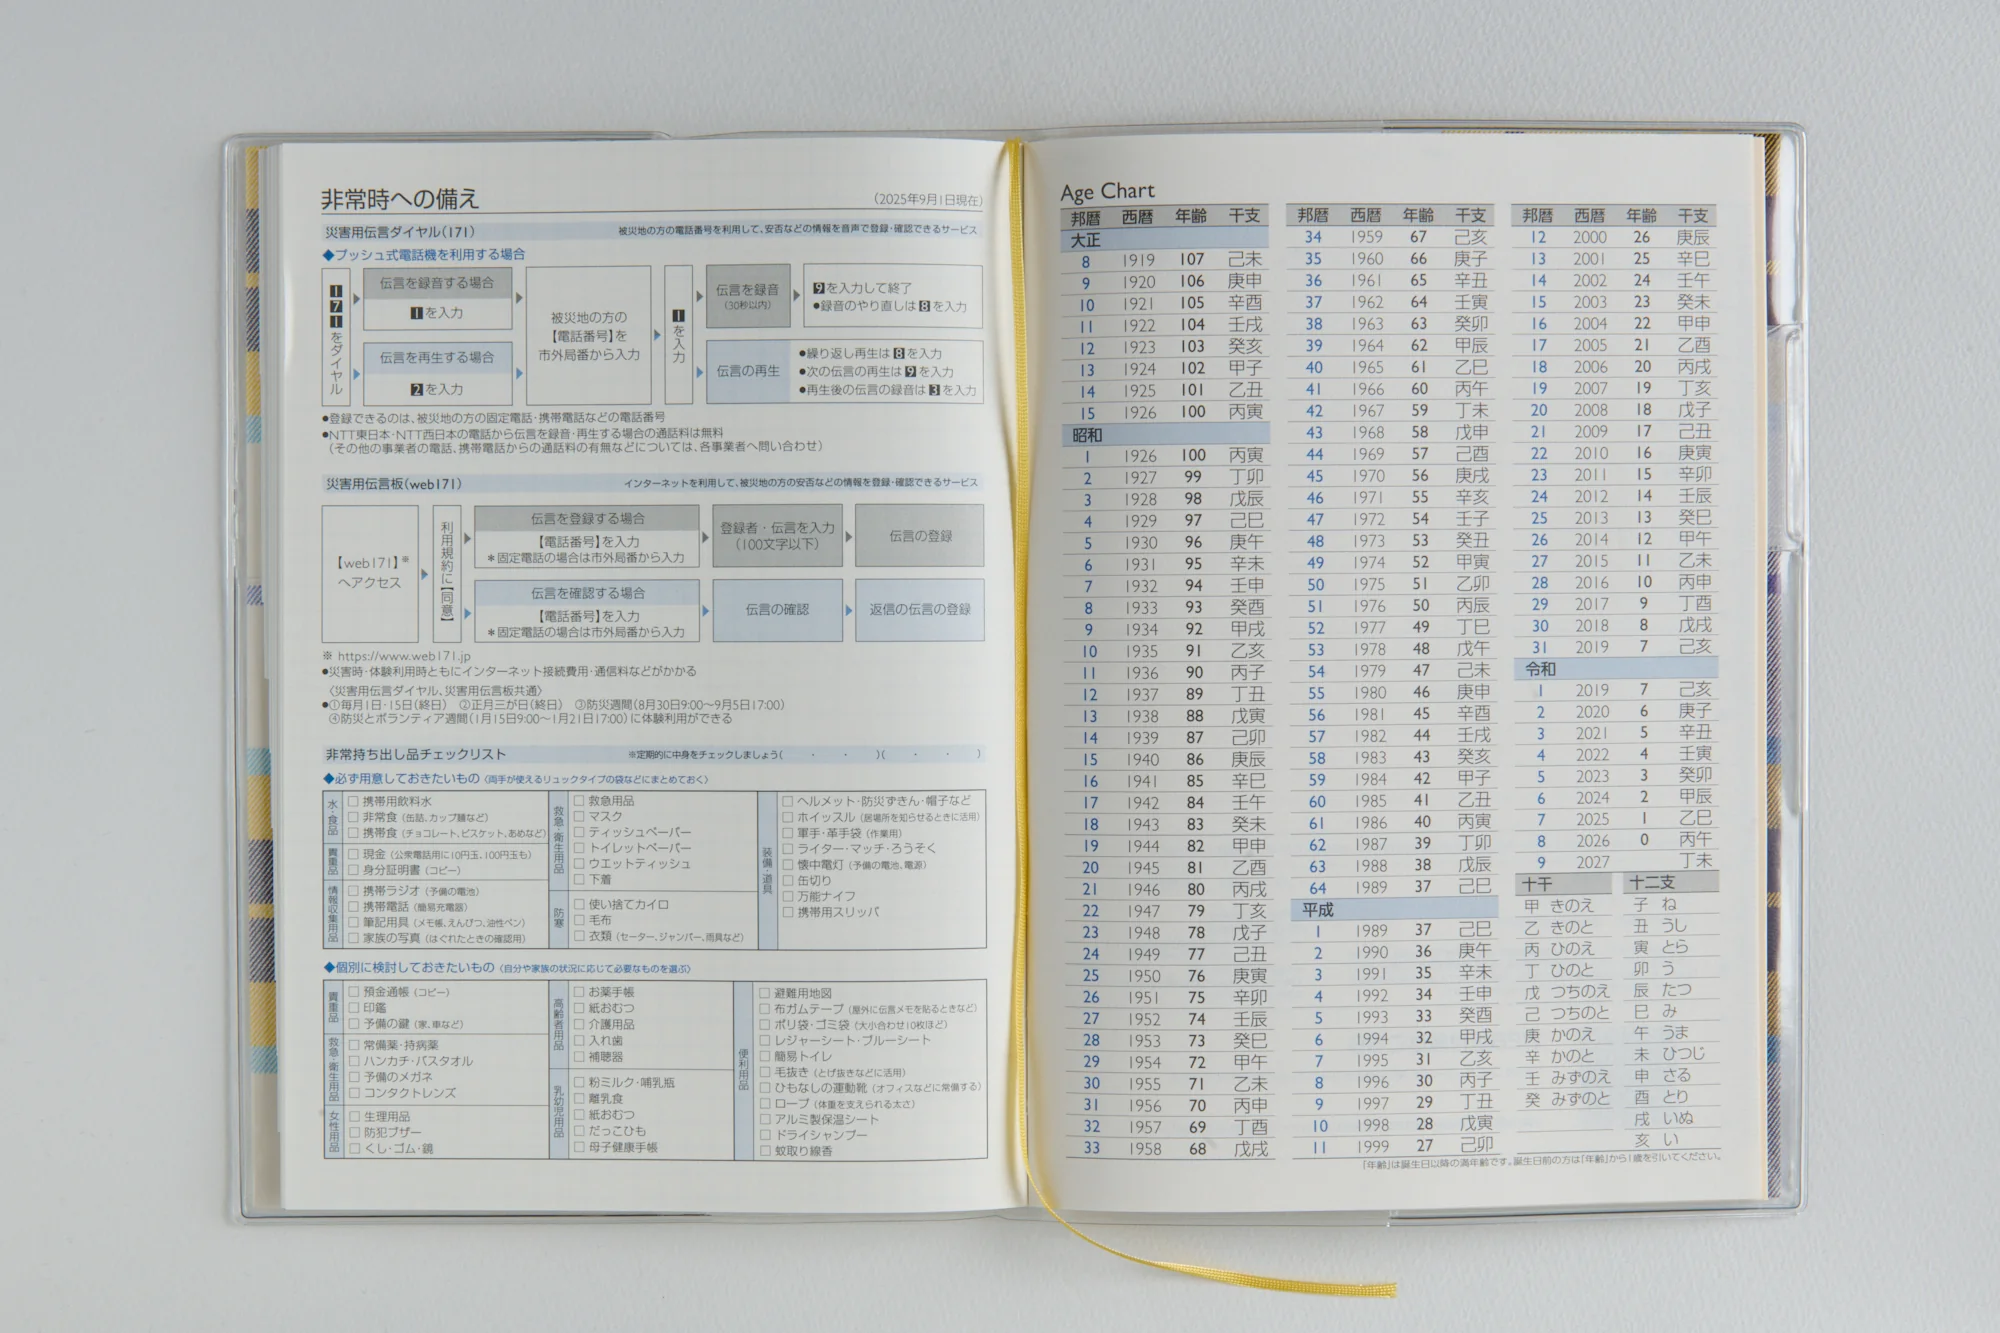 非常時への備え
(2025年9月1日現在)
災害用伝言ダイヤル(171)
被災地の方の電話番号を利用して、安否などの情報を音声で登録・確認できるサービス
◆プッシュ式電話機を利用する場合
171をダイヤル
伝言を録音する場合
1を入力
伝言を再生する場合
2を入力
被災地の方の
【電話番号】を
市外局番から入力
1を入力
伝言を録音
(30秒以内)
9を入力して終了
●録音のやり直しは8を入力
伝言の再生
●繰り返し再生は8を入力
●次の伝言の再生は9を入力
●再生後の伝言の録音は3を入力
●登録できるのは、被災地の方の固定電話・携帯電話などの電話番号
●NTT東日本・NTT西日本の電話から伝言を録音・再生する場合の通話料は無料
(その他の事業者の電話、携帯電話からの通話料の有無などについては、各事業者へ問い合わせ)
災害用伝言板(web171)
インターネットを利用して、被災地の方の安否などの情報を登録・確認できるサービス
【web171】※
へアクセス
利用規約に【同意】
伝言を登録する場合
【電話番号】を入力
＊固定電話の場合は市外局番から入力
登録者・伝言を入力
(100文字以下)
伝言の登録
伝言を確認する場合
【電話番号】を入力
＊固定電話の場合は市外局番から入力
伝言の確認
返信の伝言の登録
※ https://www.web171.jp
●災害時・体験利用時ともにインターネット接続費用・通信料などがかかる
〈災害用伝言ダイヤル、災害用伝言板共通〉
●①毎月1日・15日(終日) ②正月三が日(終日) ③防災週間(8月30日9:00〜9月5日17:00)
④防災とボランティア週間(1月15日9:00〜1月21日17:00)に体験利用ができる
非常持ち出し品チェックリスト
※定期的に中身をチェックしましょう( ・ ・ )( ・ ・ )
◆必ず用意しておきたいもの〈両手が使えるリュックタイプの袋などにまとめておく〉
水・食品
□ 携帯用飲料水
□ 非常食(缶詰、カップ麺など)
□ 携帯食(チョコレート、ビスケット、あめなど)
貴重品
□ 現金(公衆電話用に10円玉、100円玉も)
□ 身分証明書(コピー)
情報収集用品
□ 携帯ラジオ(予備の電池)
□ 携帯電話(簡易充電器)
□ 筆記用具(メモ帳、えんぴつ、油性ペン)
□ 家族の写真(はぐれたときの確認用)
救急・衛生用品
□ 救急用品
□ マスク
□ ティッシュペーパー
□ トイレットペーパー
□ ウエットティッシュ
□ 下着
防寒
□ 使い捨てカイロ
□ 毛布
□ 衣類(セーター、ジャンパー、雨具など)
装備・道具
□ ヘルメット・防災ずきん・帽子など
□ ホイッスル(居場所を知らせるときに活用)
□ 軍手・革手袋(作業用)
□ ライター・マッチ・ろうそく
□ 懐中電灯(予備の電池、電源)
□ 缶切り
□ 万能ナイフ
□ 携帯用スリッパ
◆個別に検討しておきたいもの〈自分や家族の状況に応じて必要なものを選ぶ〉
貴重品
□ 預金通帳(コピー)
□ 印鑑
□ 予備の鍵(家、車など)
救急・衛生用品
□ 常備薬・持病薬
□ ハンカチ・バスタオル
□ 予備のメガネ
□ コンタクトレンズ
女性用品
□ 生理用品
□ 防犯ブザー
□ くし・ゴム・鏡
高齢者用品
□ お薬手帳
□ 紙おむつ
□ 介護用品
□ 入れ歯
□ 補聴器
乳幼児用品
□ 粉ミルク・哺乳瓶
□ 離乳食
□ 紙おむつ
□ だっこひも
□ 母子健康手帳
便利用品
□ 避難用地図
□ 布ガムテープ(屋外に伝言メモを貼るときなど)
□ ポリ袋・ゴミ袋(大小合わせ10枚ほど)
□ レジャーシート・ブルーシート
□ 簡易トイレ
□ 毛抜き(とげ抜きなどに活用)
□ ひもなしの運動靴(オフィスなどに常備する)
□ ロープ(体重を支えられる太さ)
□ アルミ製保温シート
□ ドライシャンプー
□ 蚊取り線香
Age Chart
邦暦 西暦 年齢 干支
大正
8 1919 107 己未
9 1920 106 庚申
10 1921 105 辛酉
11 1922 104 壬戌
12 1923 103 癸亥
13 1924 102 甲子
14 1925 101 乙丑
15 1926 100 丙寅
昭和
1 1926 100 丙寅
2 1927 99 丁卯
3 1928 98 戊辰
4 1929 97 己巳
5 1930 96 庚午
6 1931 95 辛未
7 1932 94 壬申
8 1933 93 癸酉
9 1934 92 甲戌
10 1935 91 乙亥
11 1936 90 丙子
12 1937 89 丁丑
13 1938 88 戊寅
14 1939 87 己卯
15 1940 86 庚辰
16 1941 85 辛巳
17 1942 84 壬午
18 1943 83 癸未
19 1944 82 甲申
20 1945 81 乙酉
21 1946 80 丙戌
22 1947 79 丁亥
23 1948 78 戊子
24 1949 77 己丑
25 1950 76 庚寅
26 1951 75 辛卯
27 1952 74 壬辰
28 1953 73 癸巳
29 1954 72 甲午
30 1955 71 乙未
31 1956 70 丙申
32 1957 69 丁酉
33 1958 68 戊戌
邦暦 西暦 年齢 干支
34 1959 67 己亥
35 1960 66 庚子
36 1961 65 辛丑
37 1962 64 壬寅
38 1963 63 癸卯
39 1964 62 甲辰
40 1965 61 乙巳
41 1966 60 丙午
42 1967 59 丁未
43 1968 58 戊申
44 1969 57 己酉
45 1970 56 庚戌
46 1971 55 辛亥
47 1972 54 壬子
48 1973 53 癸丑
49 1974 52 甲寅
50 1975 51 乙卯
51 1976 50 丙辰
52 1977 49 丁巳
53 1978 48 戊午
54 1979 47 己未
55 1980 46 庚申
56 1981 45 辛酉
57 1982 44 壬戌
58 1983 43 癸亥
59 1984 42 甲子
60 1985 41 乙丑
61 1986 40 丙寅
62 1987 39 丁卯
63 1988 38 戊辰
64 1989 37 己巳
平成
1 1989 37 己巳
2 1990 36 庚午
3 1991 35 辛未
4 1992 34 壬申
5 1993 33 癸酉
6 1994 32 甲戌
7 1995 31 乙亥
8 1996 30 丙子
9 1997 29 丁丑
10 1998 28 戊寅
11 1999 27 己卯
邦暦 西暦 年齢 干支
12 2000 26 庚辰
13 2001 25 辛巳
14 2002 24 壬午
15 2003 23 癸未
16 2004 22 甲申
17 2005 21 乙酉
18 2006 20 丙戌
19 2007 19 丁亥
20 2008 18 戊子
21 2009 17 己丑
22 2010 16 庚寅
23 2011 15 辛卯
24 2012 14 壬辰
25 2013 13 癸巳
26 2014 12 甲午
27 2015 11 乙未
28 2016 10 丙申
29 2017 9 丁酉
30 2018 8 戊戌
31 2019 7 己亥
令和
1 2019 7 己亥
2 2020 6 庚子
3 2021 5 辛丑
4 2022 4 壬寅
5 2023 3 癸卯
6 2024 2 甲辰
7 2025 1 乙巳
8 2026 0 丙午
9 2027 丁未
十干
甲 きのえ
乙 きのと
丙 ひのえ
丁 ひのと
戊 つちのえ
己 つちのと
庚 かのえ
辛 かのと
壬 みずのえ
癸 みずのと
十二支
子 ね
丑 うし
寅 とら
卯 う
辰 たつ
巳 み
午 うま
未 ひつじ
申 さる
酉 とり
戌 いぬ
亥 い
「年齢」は誕生日以降の満年齢です。誕生日前の方は「年齢」から1歳を引いてください。